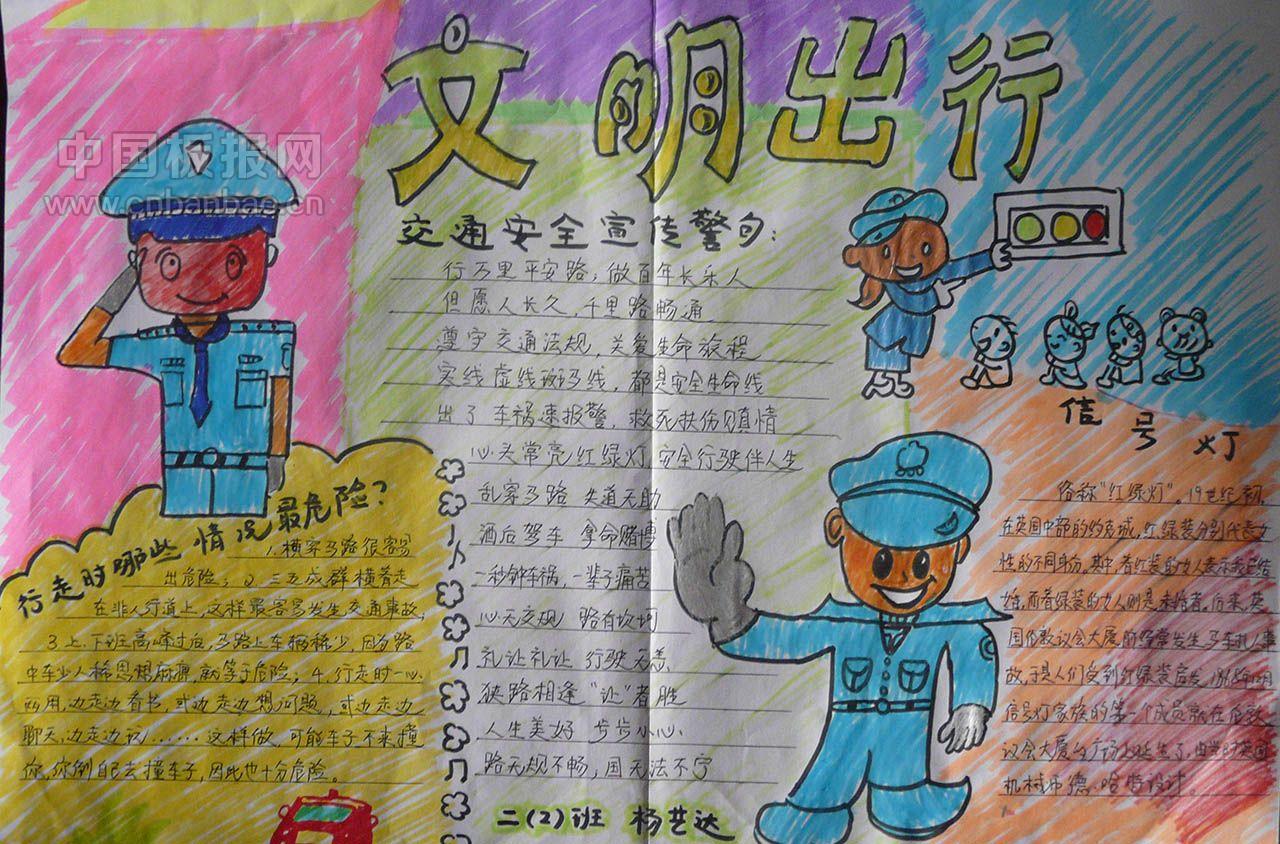 文明出行
中国板报网
www.cnbanbao.cn
交通安全宣传警句:
行万里平安路,做百年长乐人
但愿人长久,千里路畅通
尊守交通法规,关爱生命旅程
实线虚线斑马线,都是安全生命线
出了车祸速报警,救死扶伤见真情
心头常亮红绿灯,安全行驶伴人生
乱穿马路 失道无助
酒后驾车 拿命赌博
一秒钟车祸,一辈子痛苦
心无交规 路有坎坷
礼让礼让 行驶无恙
狭路相逢“让”者胜
人生美好 步步小心
路无规不畅,国无法不宁
二(2)班 杨艺达
行走时哪些情况最危险?
1、横穿马路很容易
出危险;2、三五成群横着走
在非人行道上,这样最容易发生交通事故;
3上、下班高峰过后,马路上车辆稀少,因为路
中车少人稀思想麻痹,就等于危险;4、行走时一心
两用,边走边看书,或边走边想问题,或边走边
聊天,边走边玩……这样做,可能车子不来撞
你,你倒自己去撞车子,因此也十分危险。
信号灯
俗称“红绿灯”。19世纪初,
在英国中部的约克城,红、绿装分别代表女
性的不同身份。其中,着红装的女人表示我已结
婚,而着绿装的女人则是未婚者。后来,英
国伦敦议会大厦前经常发生马车轧人事
故,于是人们受到红绿装启发,1868年12月
信号灯家族的第一个成员就在伦敦
议会大厦的广场上诞生了,由当时英国
机械师德·哈特设计。